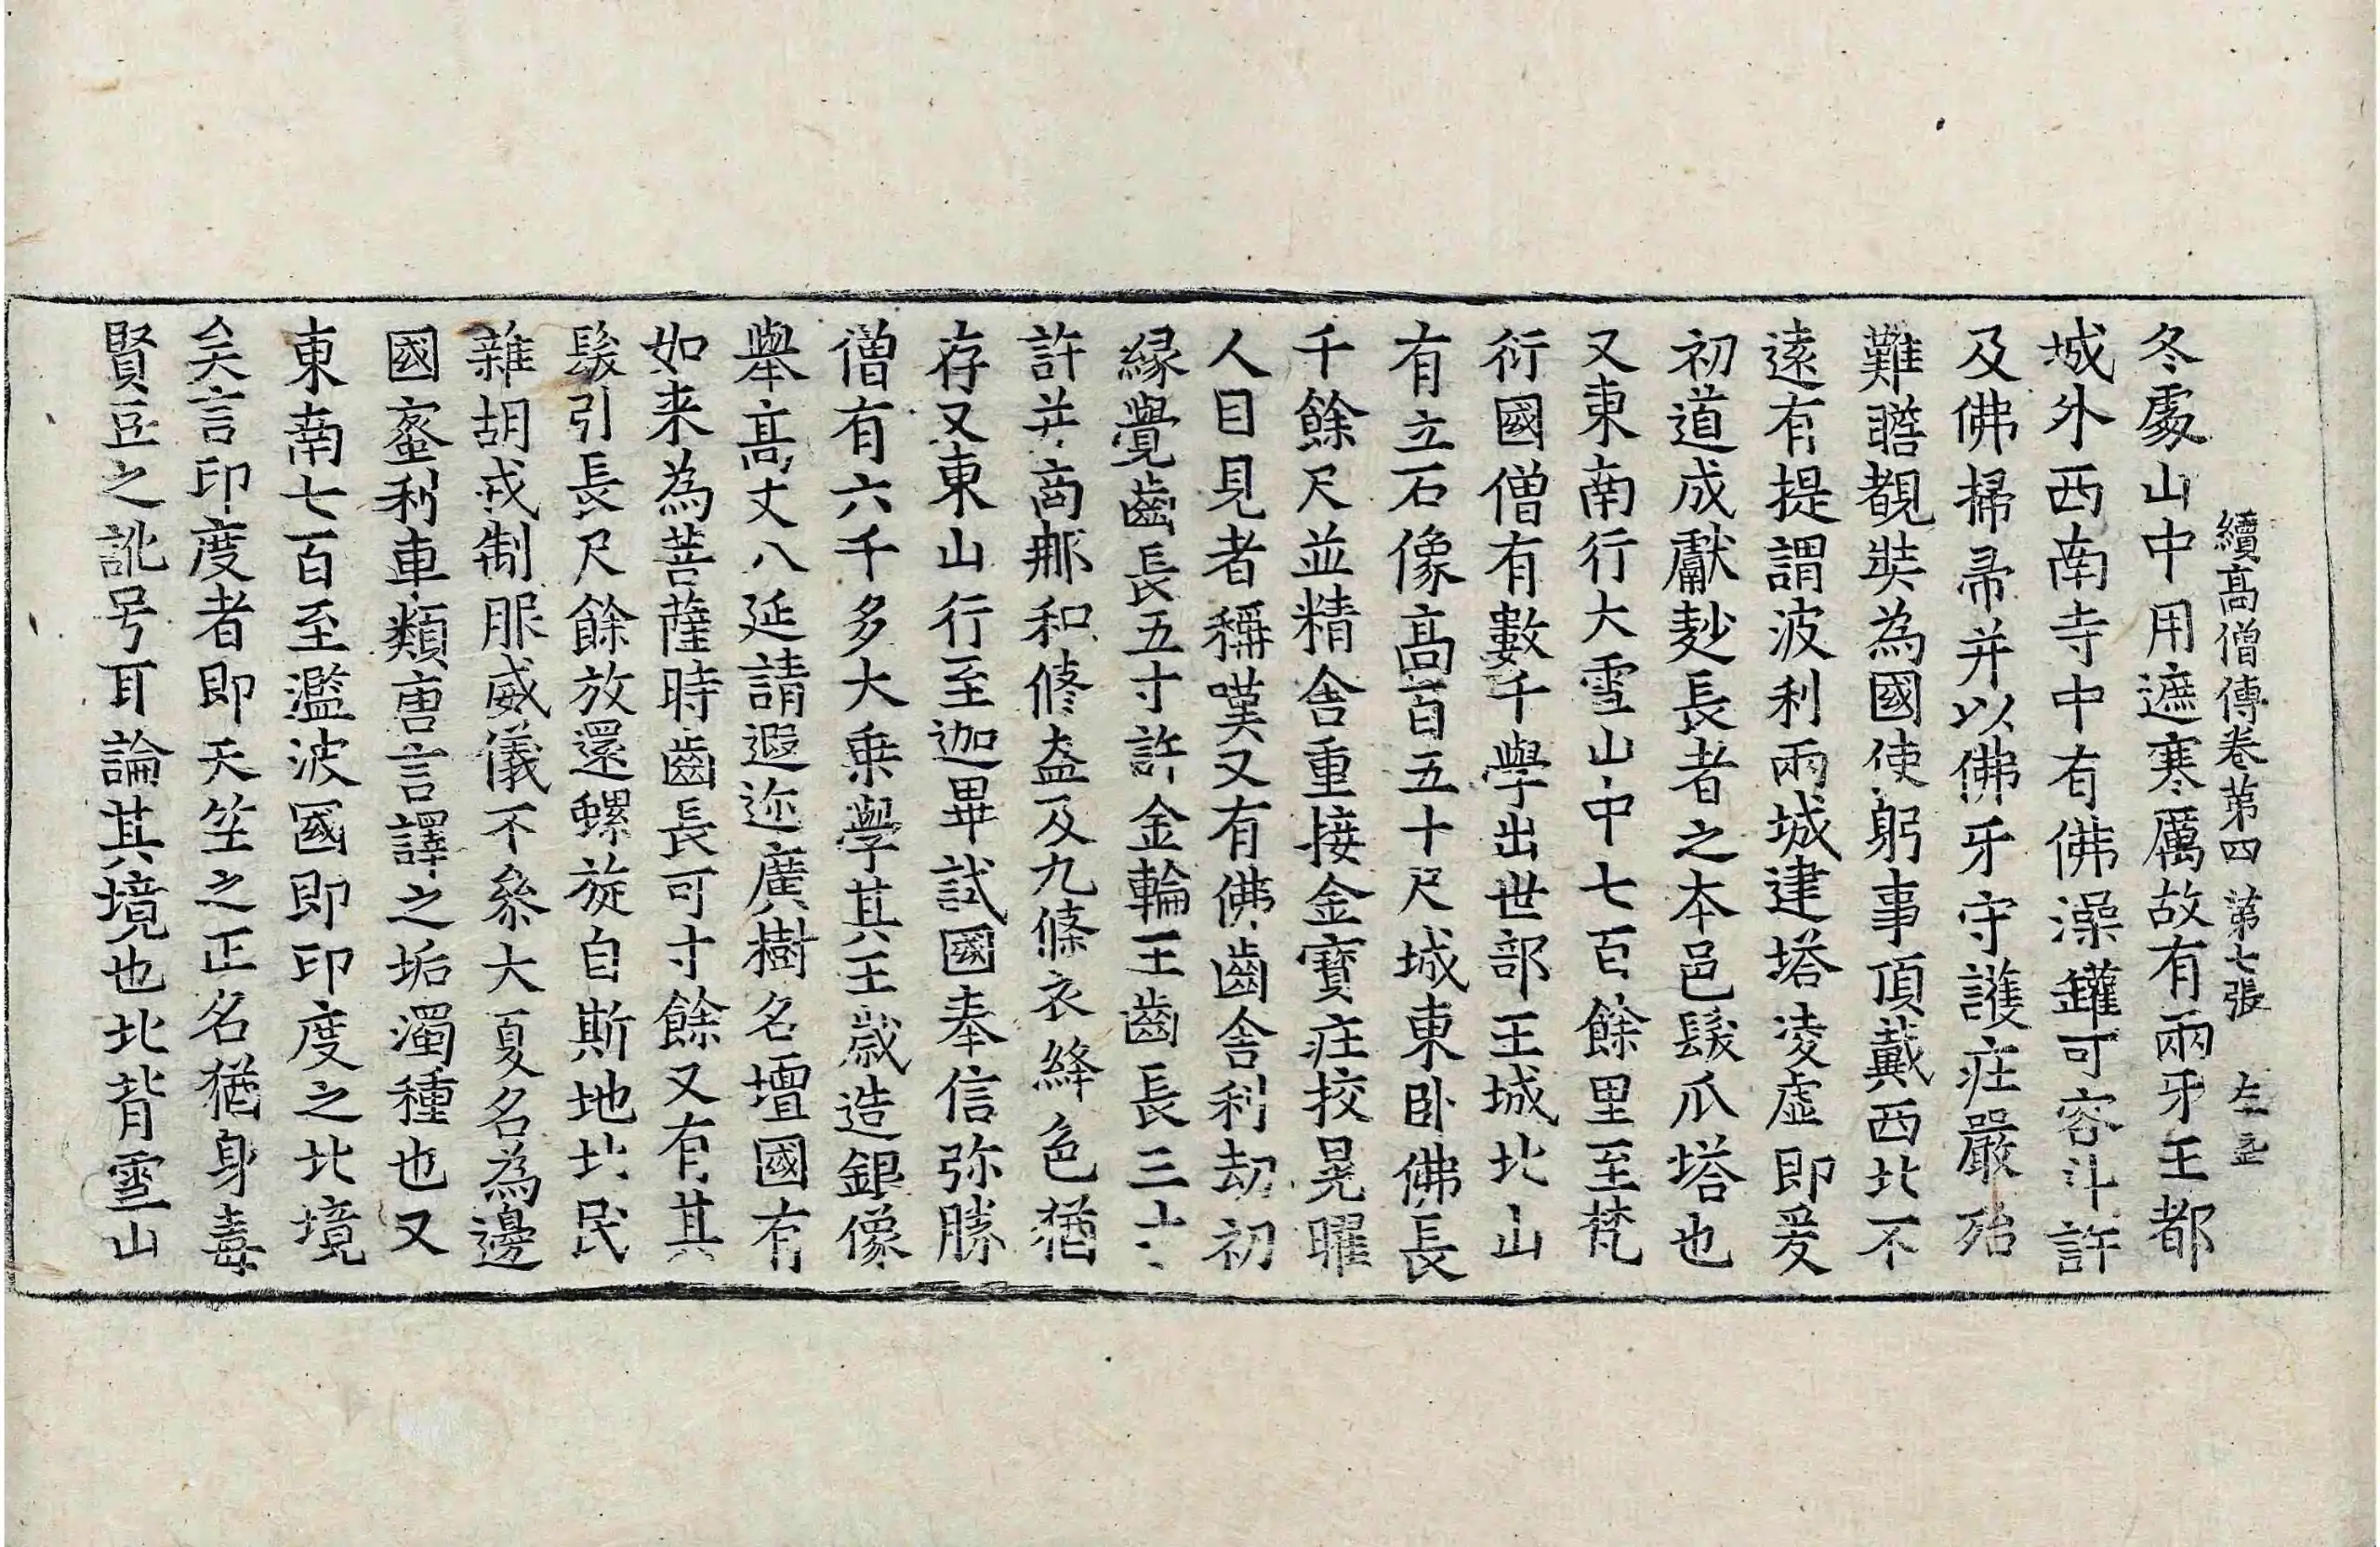 續高僧傳卷第四 第七張 左
冬處山中用遮寒厲故有兩牙王都
城外西南寺中有佛澡罐可容斗許
及佛掃帚并以佛牙守護莊嚴殆
難瞻覩奘為國使躬事頂戴西北不
遠有提謂波利兩城建塔凌虛即爰
初道成獻麨長者之本邑髮爪塔也
又東南行大雪山中七百餘里至梵
衍國僧有數千學出世部王城北山
有立石像高百五十尺城東臥佛長
千餘尺並精舍重接金寶莊挍晃曜
人目見者稱嘆又有佛齒舍利劫初
緣覺齒長五寸許金輪王齒長三寸
許并商那和修盔及九條衣絳色猶
存又東山行至迦畢試國奉信弥勝
僧有六千多大乘學其王歲造銀像
舉高丈八延請遐迩廣樹名壇國有
如来為菩薩時齒長可寸餘又有其
髮引長尺餘放還螺旋自斯地北民
雜胡戎制服威儀不參大夏名為邊
國蜜利車類唐言譯之垢濁種也又
東南七百至濫波國即印度之北境
矣言印度者即天竺之正名猶身毒
賢豆之訛号耳論其境也北背雪山